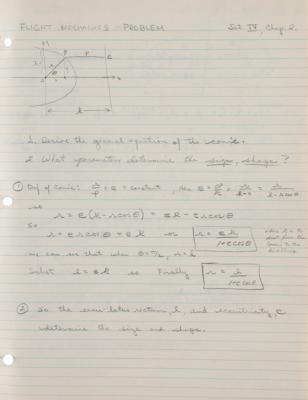 FLIGHT MECHANICS PROBLEM Set IV, Chap. 2.
1. Derive the general equation of the conic.
2. What parameters determine the size, shape?
① Def of Conic: = constant,
so
r = ε(k - r cos θ) = εk - ε r cos θ
So
r + ε r cos θ = εk or r = εk / 1+ε cos θ
We can see that when θ = π/2, r = h
Subst h = εk so Finally r = h / 1+ε cos θ
② So the semi-latus rectum, h, and eccentricity, ε
determine the size and shape.